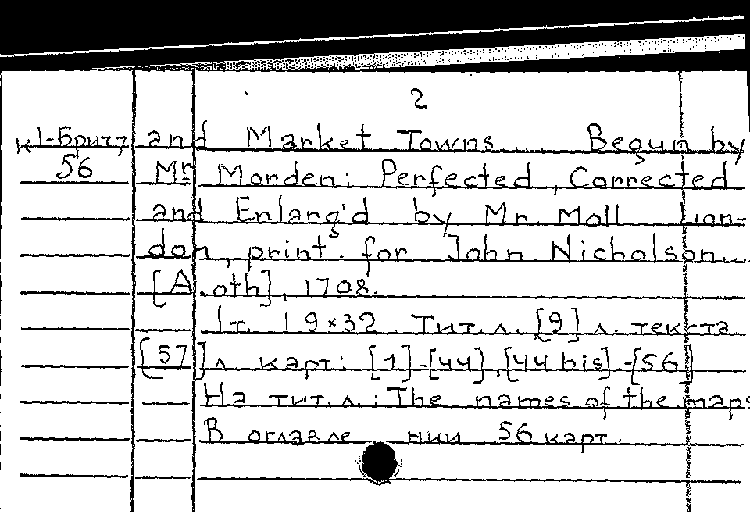 2
К1-Брит. and Market Towns... Begun by
56 Mr Morden: Perfected, Corrected
and Enlarg'd by Mr. Moll Lon-
don, print. for John Nicholson...
[A. oth], 1708.
1т. 19×32. Тит.л. [9] л. текста
[57] л. карт: [1]-[44], [44 bis]-[56]
На тит.л.: The names of the maps
В оглавле нии 56 карт.